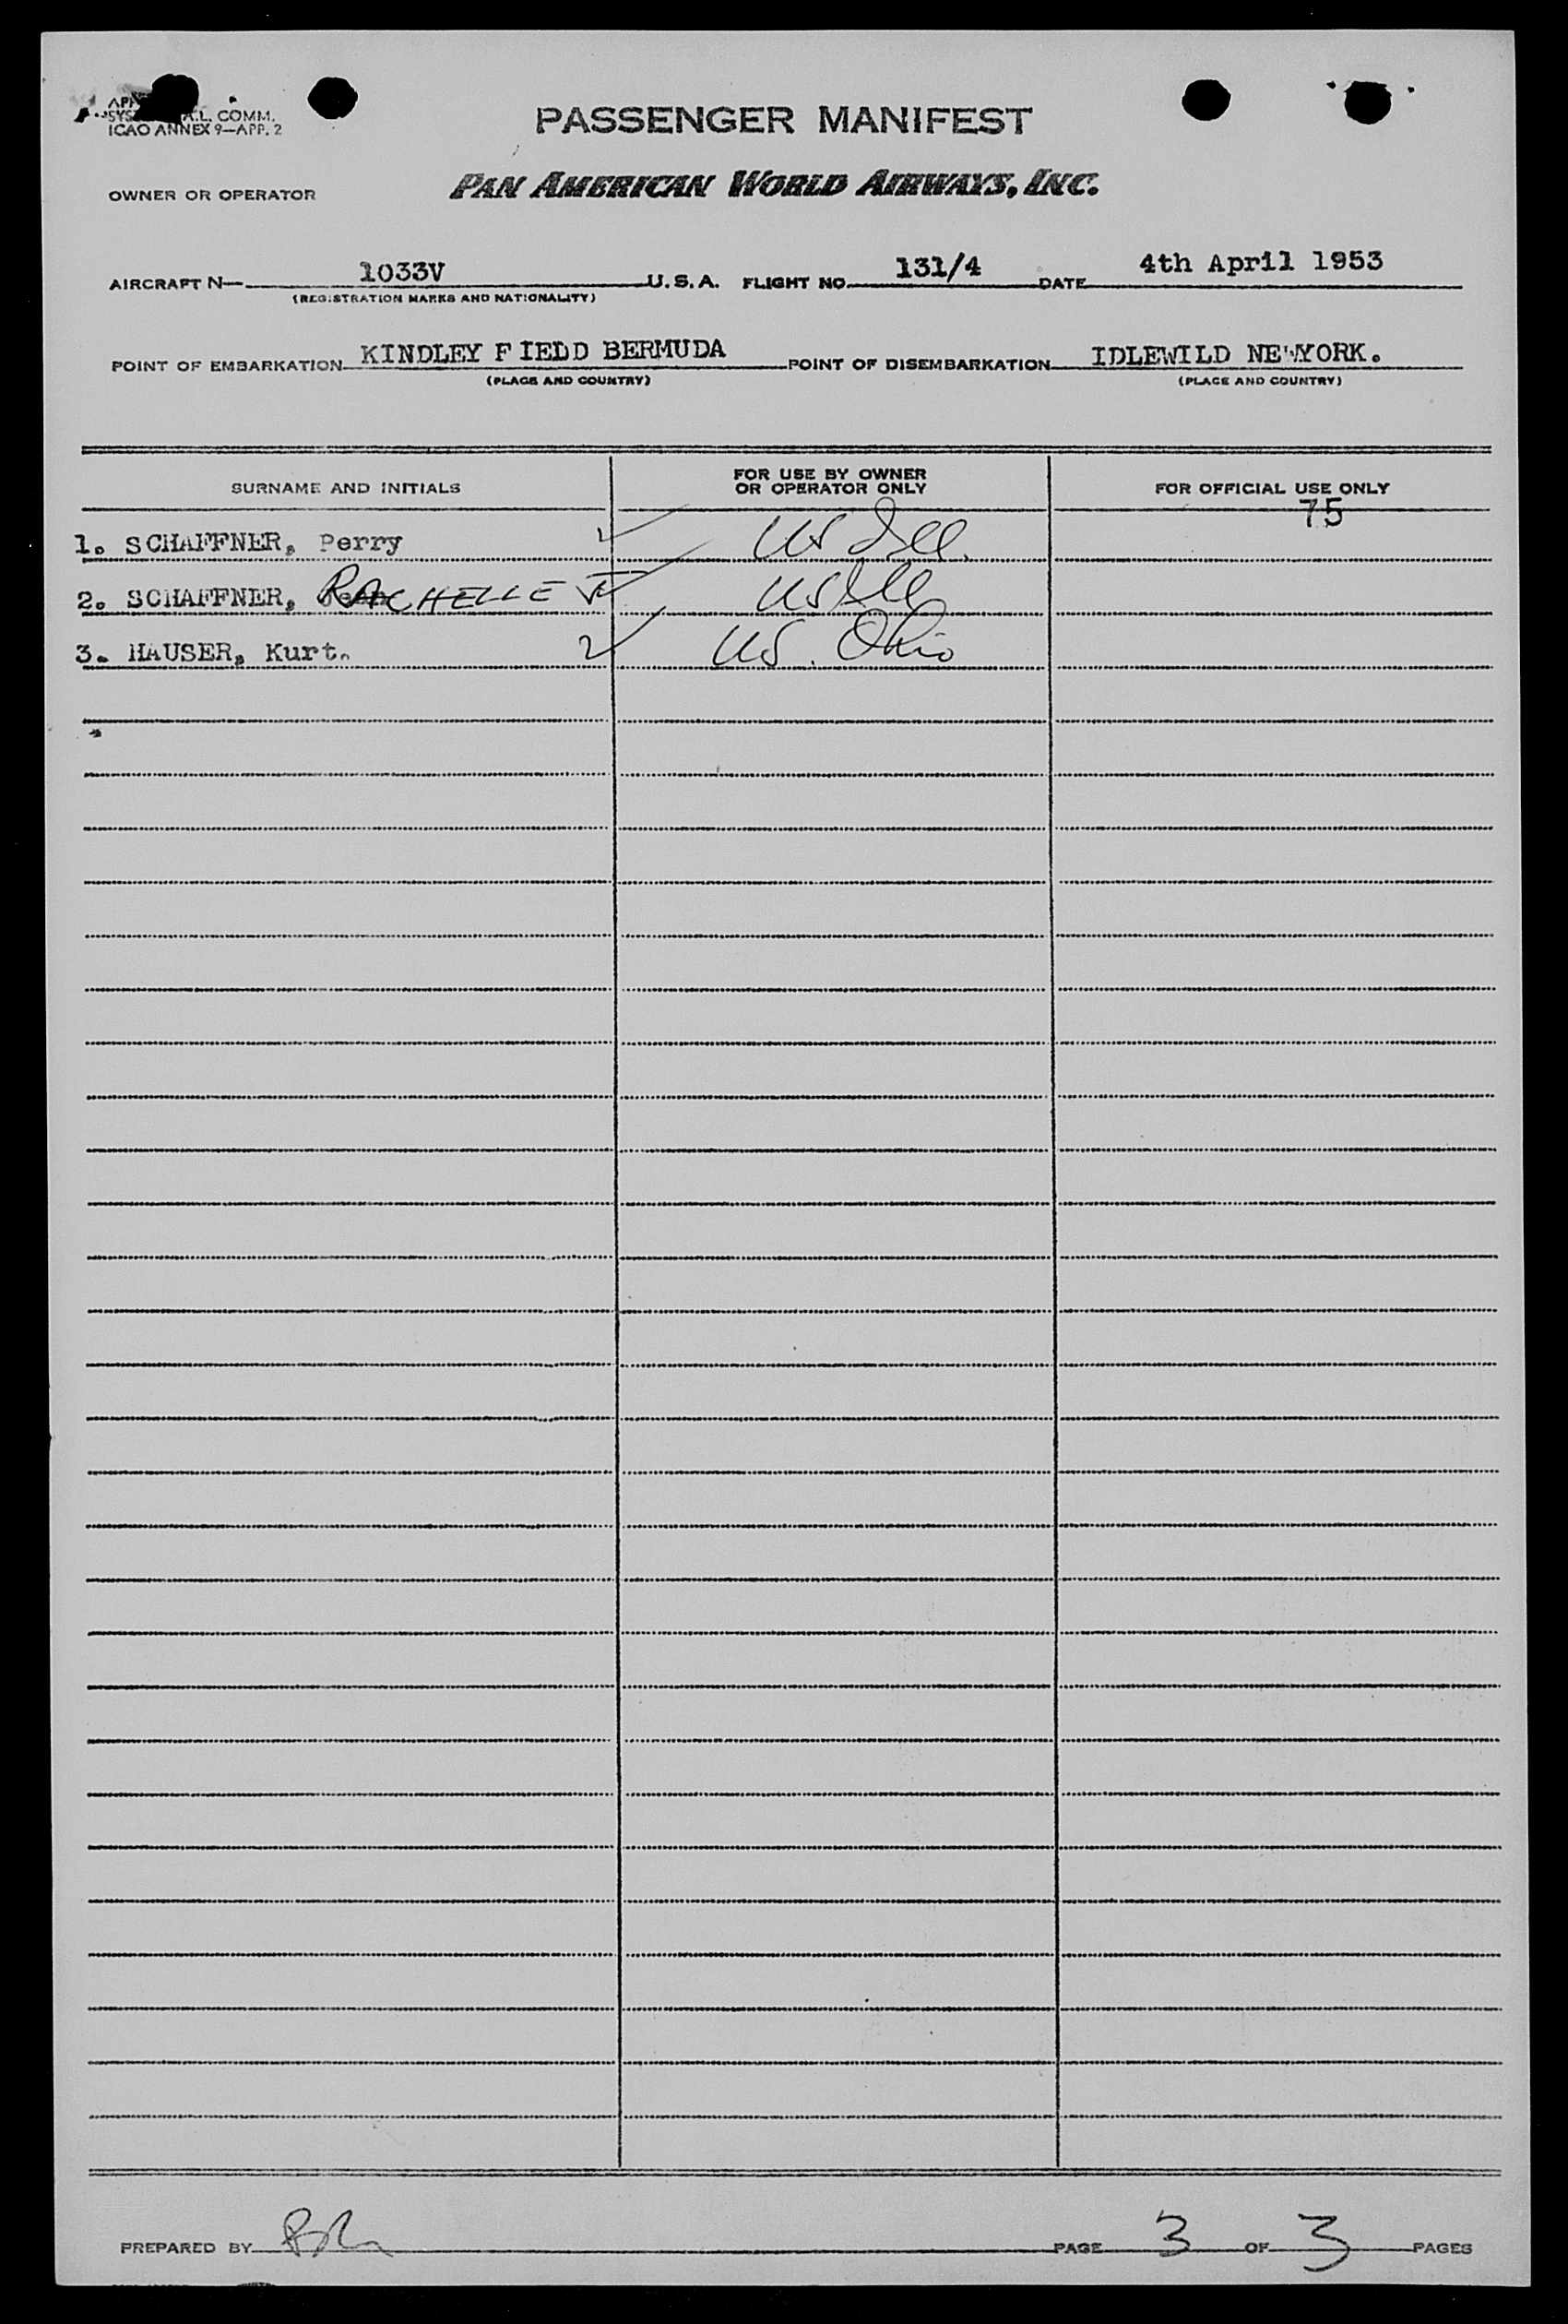 A.L. COMM.
ICAO ANNEX 9—APP. 2
PASSENGER MANIFEST
OWNER OR OPERATOR PAN AMERICAN WORLD AIRWAYS, INC.
AIRCRAFT N— 1033V U. S. A. FLIGHT NO. 131/4 DATE 4th April 1953
(REGISTRATION MARKS AND NATIONALITY)
POINT OF EMBARKATION KINDLEY FIEDD BERMUDA POINT OF DISEMBARKATION IDLEWILD NEWYORK.
(PLACE AND COUNTRY) (PLACE AND COUNTRY)
SURNAME AND INITIALS FOR USE BY OWNER OR OPERATOR ONLY FOR OFFICIAL USE ONLY
75
1. SCHAFFNER, Perry US Ill.
2. SCHAFFNER, RACHELLE US Ill
3. HAUSER, Kurt. US. Ohio
PREPARED BY PAGE 3 OF 3 PAGES